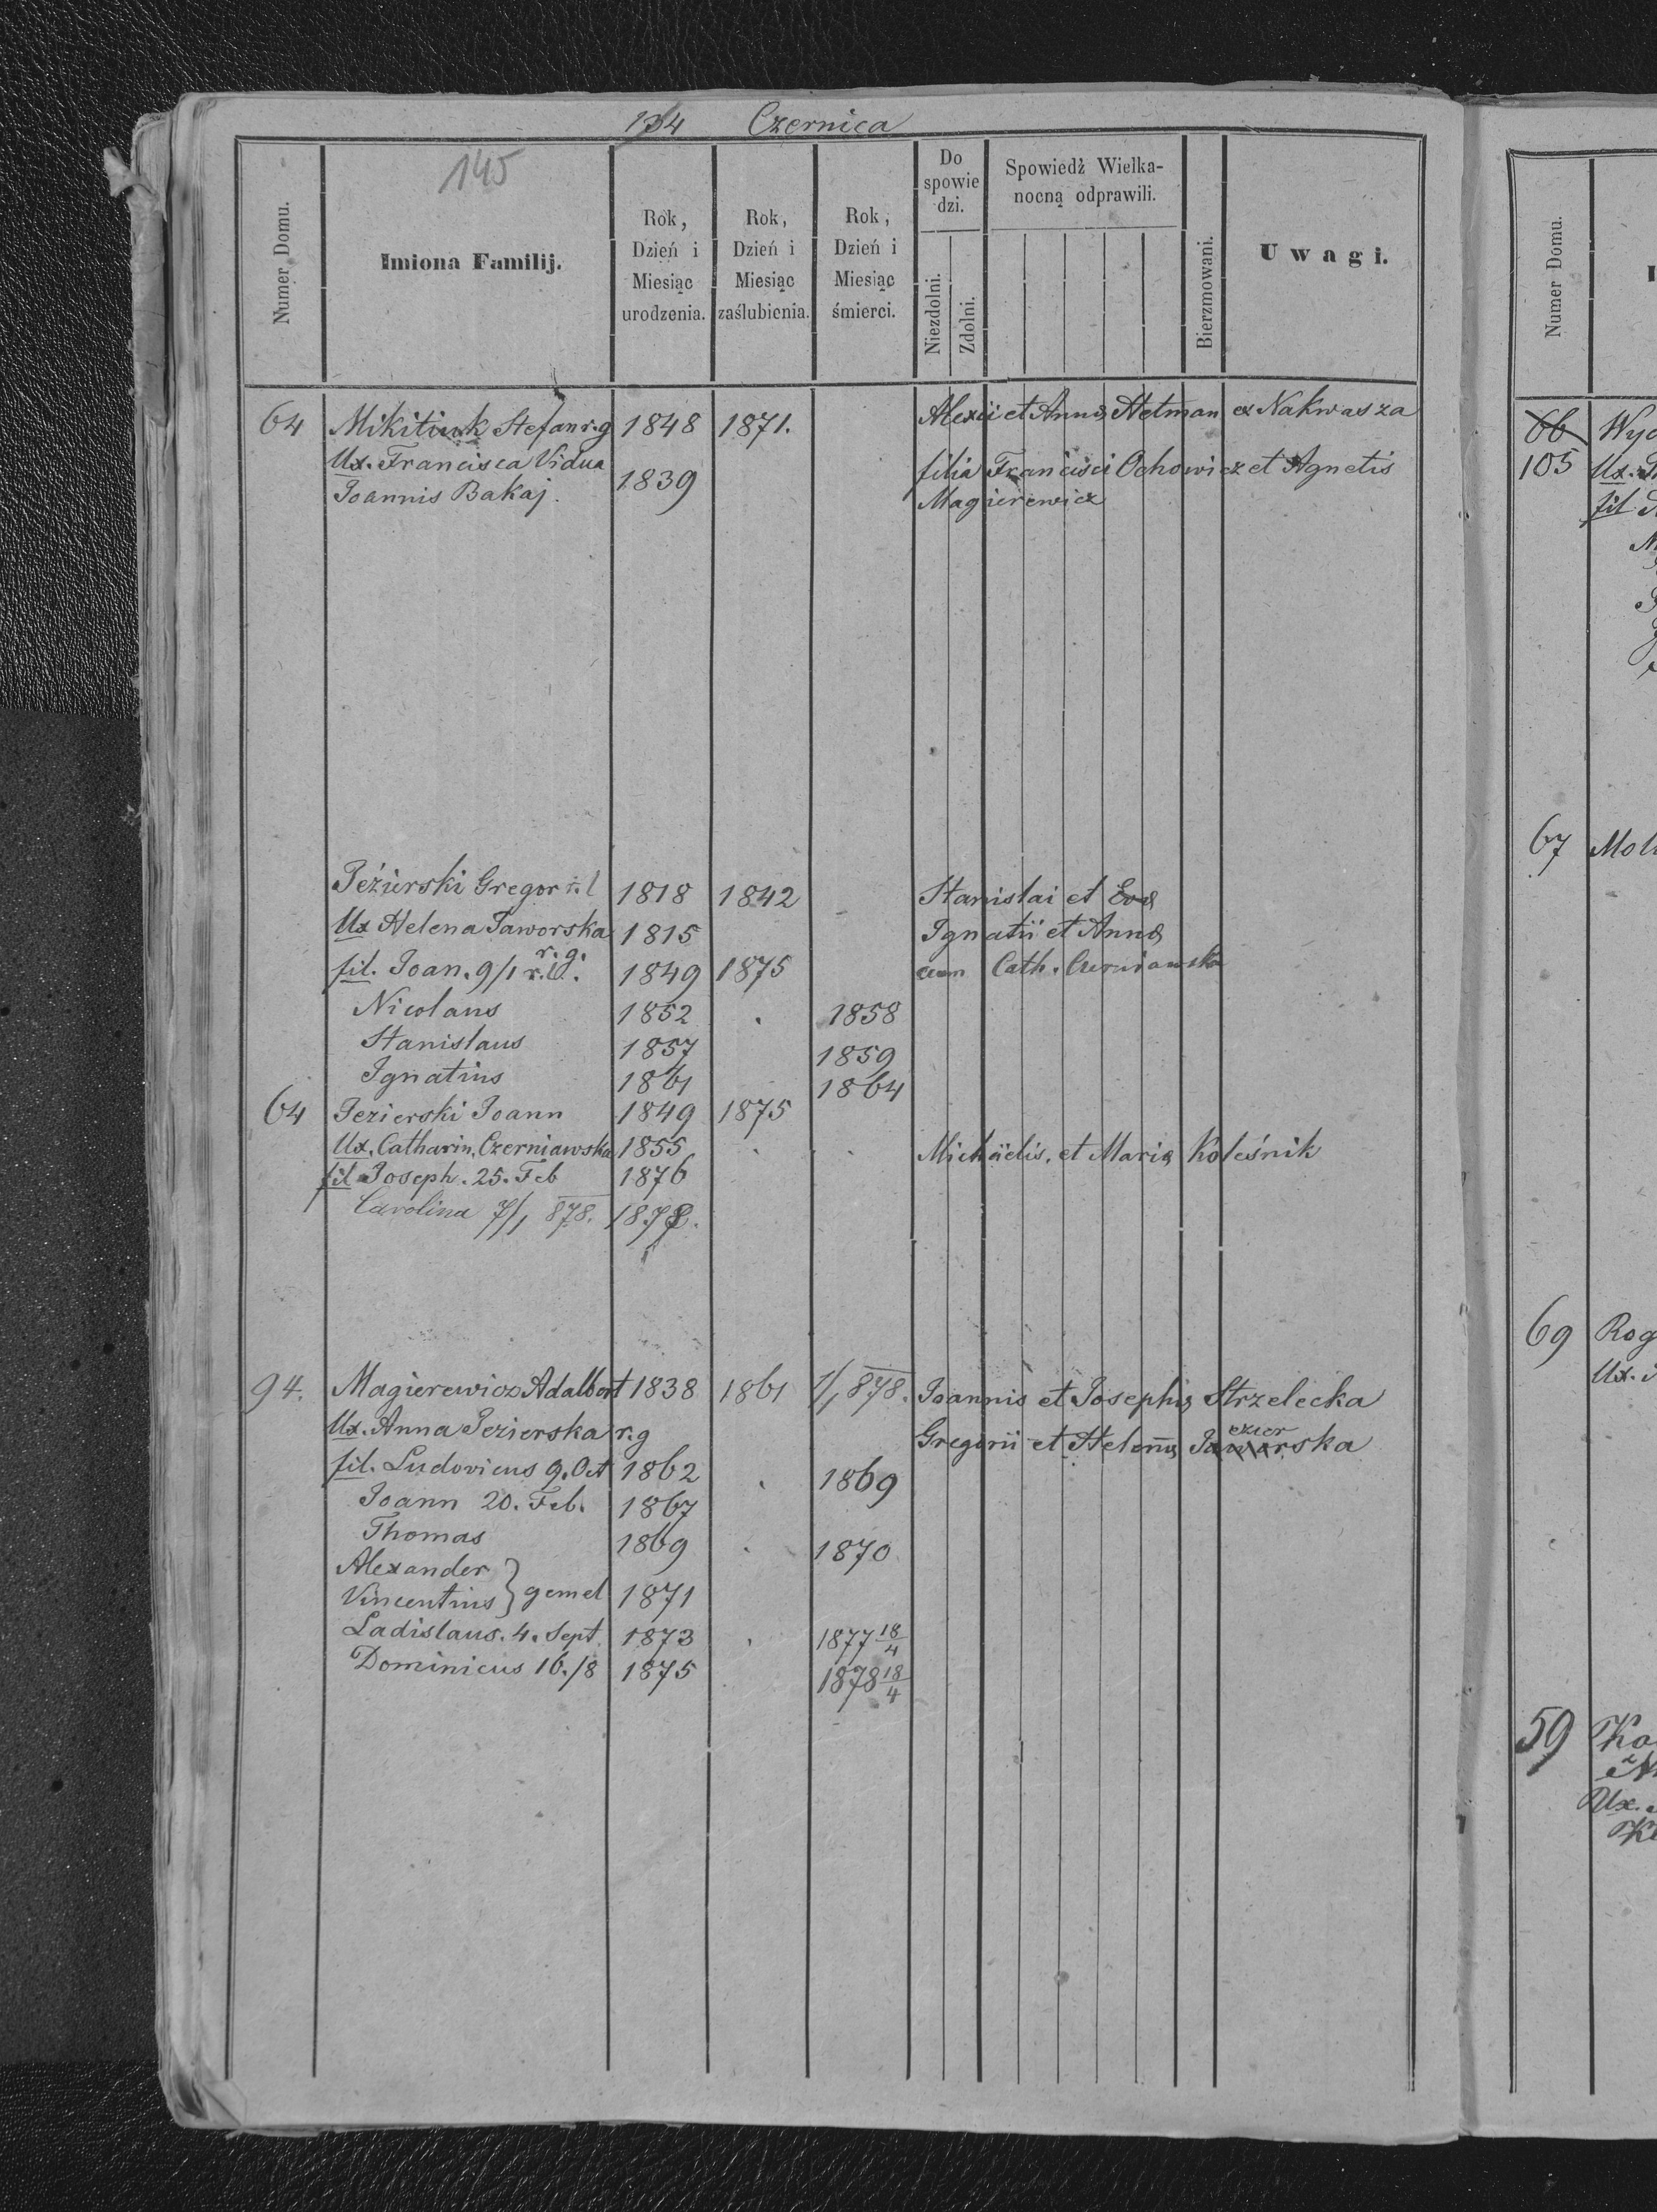 134 Czernica
145
Numer Domu.
Imiona Familij.
Rok, Dzień i Miesiąc urodzenia.
Rok, Dzień i Miesiąc zaślubienia.
Rok, Dzień i Miesiąc śmierci.
Do spowiedzi.
Niezdolni.
Zdolni.
Spowiedź Wielkanocną odprawili.
Bierzmowani.
Uwagi.
64 Mikitiuk Stefan r.g 1848 1871. Alexii et Annæ Hetman ex Nakwasza
Ux. Francisca Vidua 1839 filia Francisci Ochowicz et Agnetis
Joannis Bakaj. Magierewicz
Jeżierski Gregor r.l 1818 1842 Stanislai et Evæ
Ux Helena Jaworska 1815 Ignatii et Annæ
r.g.
fil. Joan. 9/1 r.l. 1849 1875 cum Cath. Czerniawska
Nicolaus 1852 1858
Stanislaus 1857 1859
Ignatius 1861 1864
64 Jezierski Joann 1849 1875
Ux. Catharin. Czerniawska 1855 Michaëlis. et Mariæ Koleśnik
fil Joseph. 25. Feb 1876
Carolina 7/1 878. 1878.
94. Magierewicz Adalbert 1838 1861 1/1 878. Joannis et Josephæ Strzelecka
Ux. Anna Jezierska r.g Gregorii et Helenæ Jaworska
ezier
fil. Ludovicus 9. Oct 1862 1869
Joann 20. Feb. 1867
Thomas 1869 1870
Alexander
Vincentius } gemel 1871
Ladislaus. 4. Sept 1873 1877 18/4
Dominicus 16./8 1875 1878 18/4
Numer Domu.
66 Wyc
105 Ux.
fil
67 Mol
69 Rog
Ux.
59 Ko
Ux.